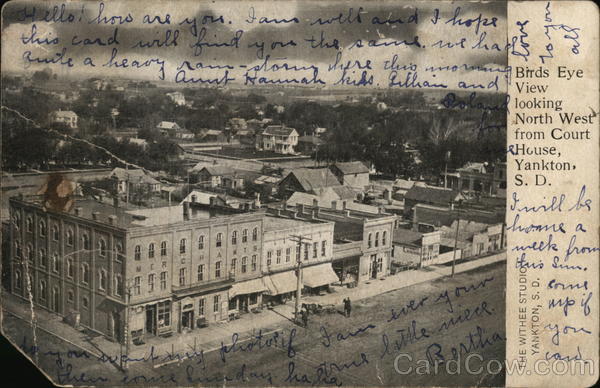 Hello! how are you. I am well and I hope
this card will find you the same. we had
quite a heavy rain-storm here this morning
Aunt Hannah kids, Lillian and
Roland
love
to you
all
Birds Eye
View
looking
North West
from Court
House,
Yankton,
S. D.
I will be
home a
week from
this Sun.
come
up if
you
can
THE WITHEE STUDIO
YANKTON, S. D.
do you want my photo? if
then come Sunday
I am ever your
little niece
Bertha
CardCow.com